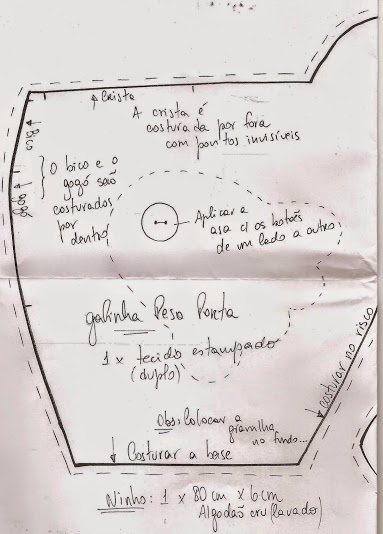 Crista
A crista é
costurada por fora
com pontos invisíveis
Bico
O bico e o
gogó são
costurados
por
dentro
gogó
Aplicar a
asa c/ os botões
de um lado a outro
galinha Peso Porta
1 x tecido estampado
(duplo)
costurar no risco
Obs: Colocar a
gramilha
no fundo...
Costurar a base
Ninho: 1 x 80 cm x 6 cm
Algodão cru (lavado)